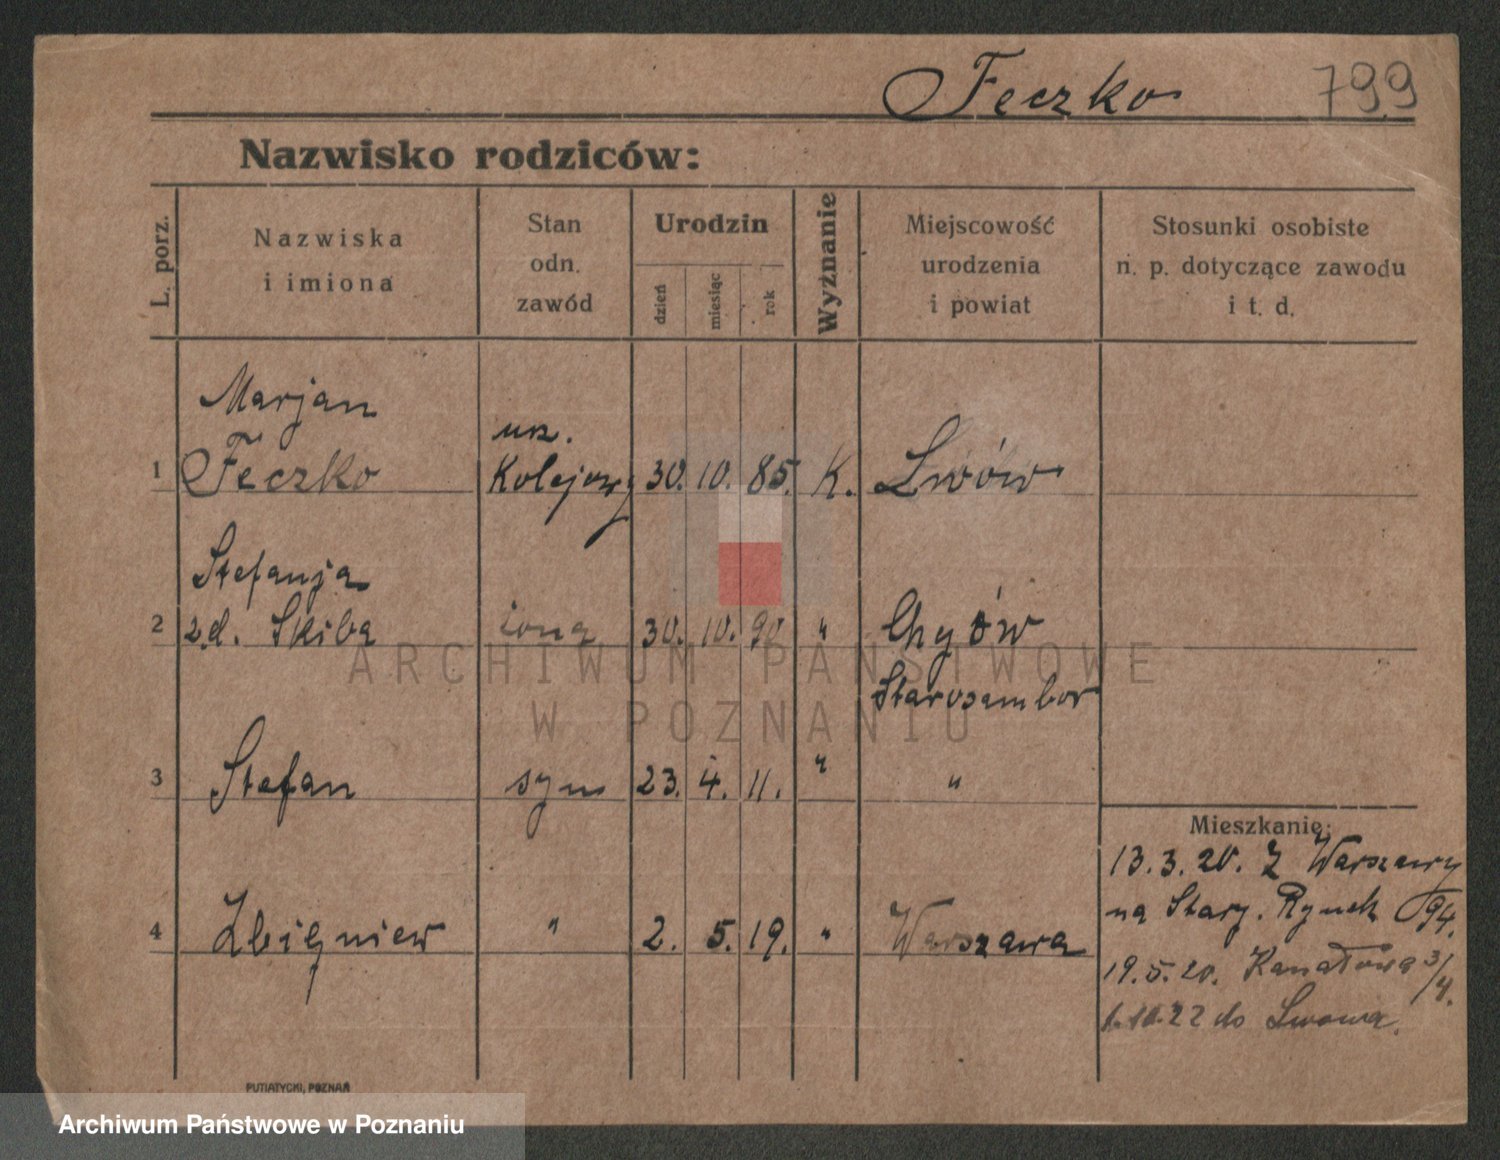 Feczko 799
Nazwisko rodziców:
L. porz.
Nazwiska
i imiona
Stan
odn.
zawód
Urodzin
dzień
miesiąc
rok
Wyznanie
Miejscowość
urodzenia
i powiat
Stosunki osobiste
n. p. dotyczące zawodu
i t. d.
Marjan
urz.
1 Feczko Kolejowy 30. 10. 85. K. Lwów
Stefanja
2 z.d. Skiba żona 30. 10. 90 " Chyrów
Starosambor
3 Stefan syn 23. 4. 11. " "
4 Zbigniew " 2. 5. 19. " Warszawa
Mieszkanie:
13.3.20. Z Warszawy
na Stary. Rynek 94.
19.5.20. Kanałowa 3/4.
1.10.22 do Lwowa.
PUTIATYCKI, POZNAŃ
ARCHIWUM PAŃSTWOWE
W POZNANIU
Archiwum Państwowe w Poznaniu